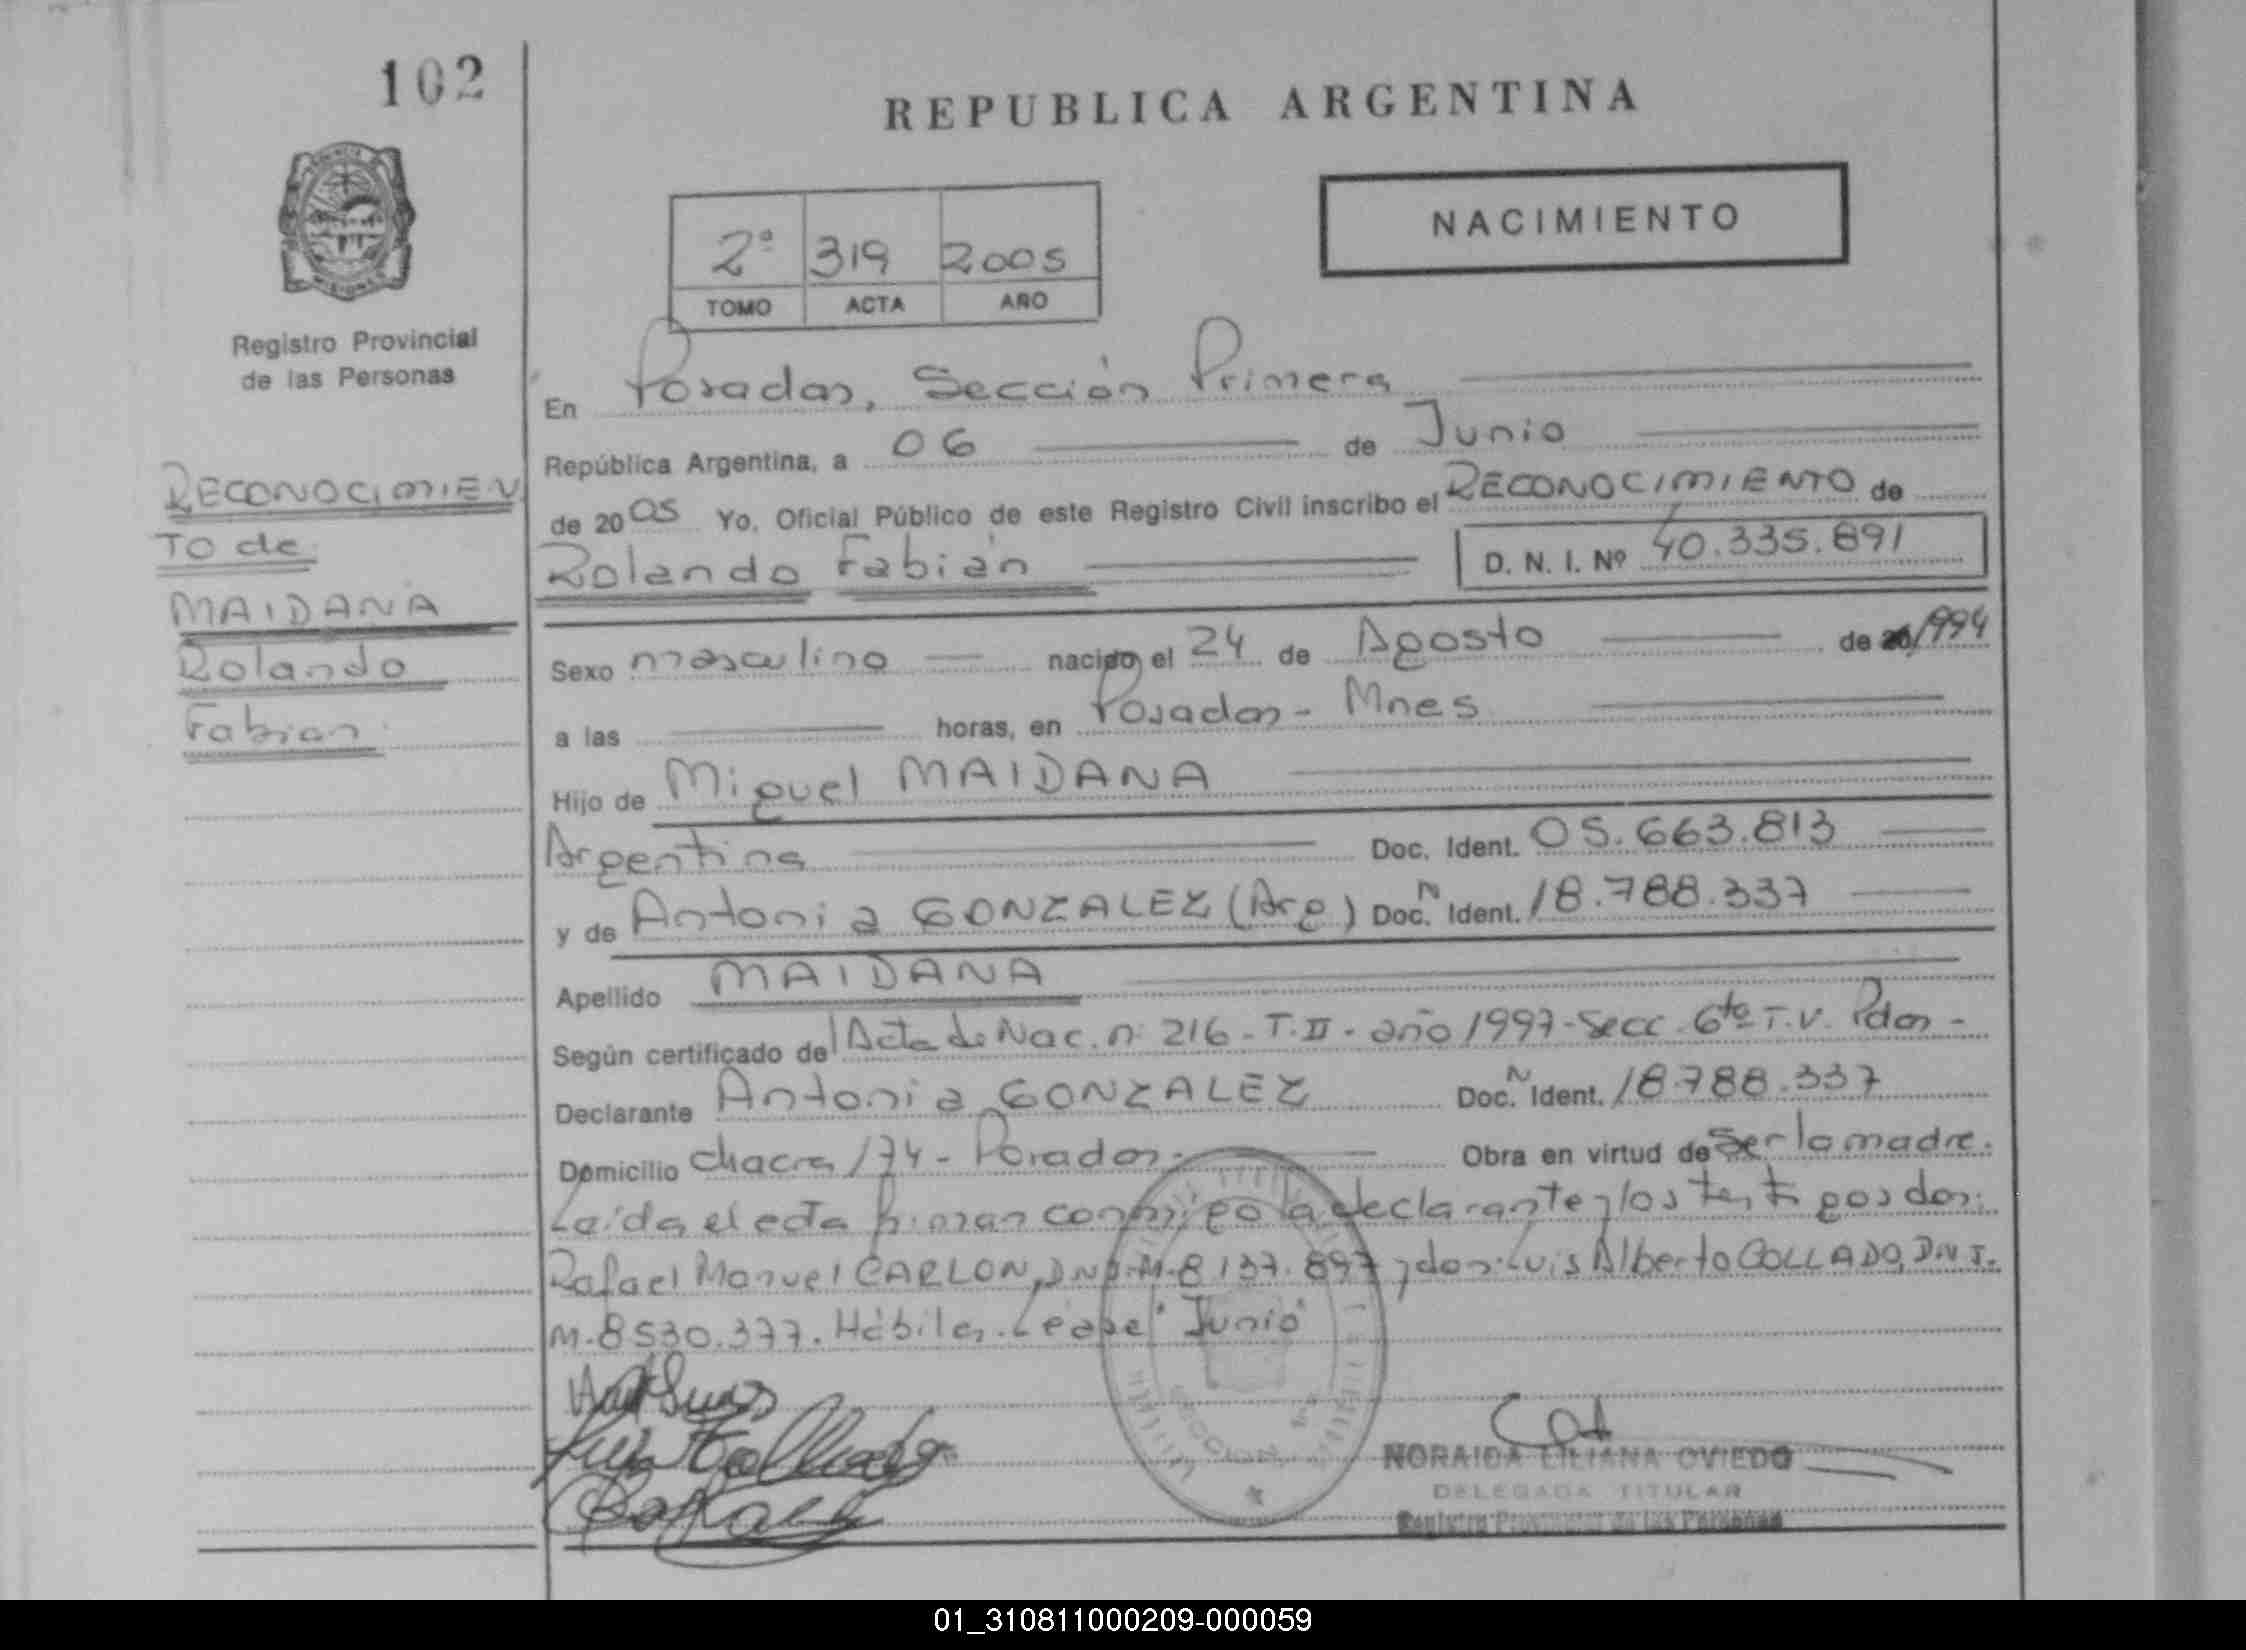 102
REPUBLICA ARGENTINA
NACIMIENTO
2ª 319 2005
TOMO ACTA AÑO
Registro Provincial
de las Personas
RECONOCIMIEN
TO de
MAIDANA
Rolando
Fabian.
En Posadas, Sección Primera
República Argentina, a 06 de Junio
de 2005 Yo, Oficial Público de este Registro Civil inscribo el RECONOCIMIENTO de
Rolando Fabián D. N. I. Nº 40.335.891
Sexo masculino nacido el 24 de Agosto de 1994
a las horas, en Posadas - Mnes
Hijo de Miguel MAIDANA
Argentina Doc. Ident. 05.663.813
y de Antonia GONZALEZ (Arg) Doc. N Ident. 18.788.337
Apellido MAIDANA
Según certificado del Acta de Nac. nº 216 - T. II - año 1997 - Secc. 6ta T.V. Pdas -
Declarante Antonia GONZALEZ Doc. N Ident. 18.788.337
Domicilio chacra 174 - Posadas - Obra en virtud de ser la madre.
Leída el acta firman conmigo la declarante y los testigos don:
Rafael Manuel CARLON, D.N.I. M. 8137.897 y don: Luis Alberto COLLADO, D.N.I.
M. 8530.377. Hábiles. Léase "Junio"
SECCION
NORAIDA LILIANA OVIEDO
DELEGADA TITULAR
Registro Provincial de las Personas
01_310811000209-000059